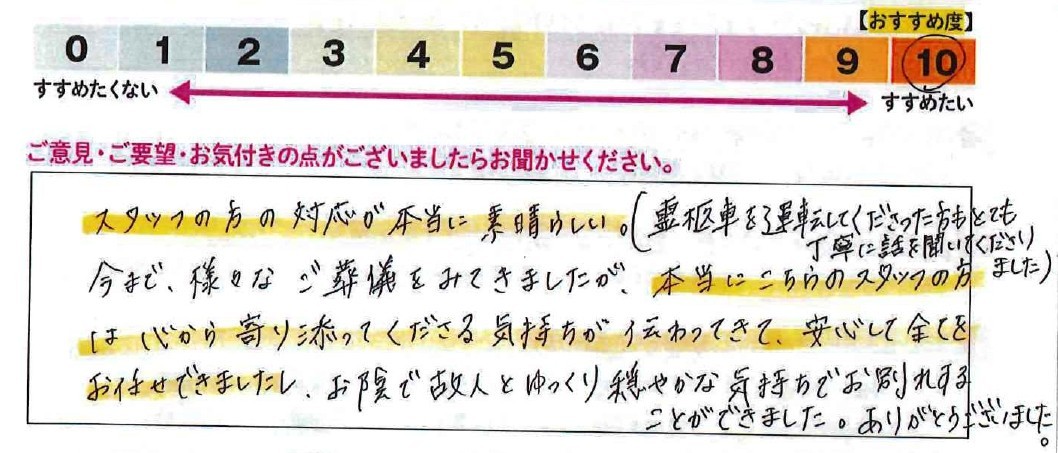 【おすすめ度】
0 1 2 3 4 5 6 7 8 9 10
すすめたくない すすめたい
ご意見・ご要望・お気付きの点がございましたらお聞かせください。
スタッフの方の対応が本当に素晴らしい。(霊柩車を運転してくださった方もとても
丁寧に話を聞いてください
ました)
今まで、様々なご葬儀をみてきましたが、本当にこちらのスタッフの方
は心から寄り添ってくださる気持ちが伝わってきて、安心して全てを
お任せできましたし、お陰で故人とゆっくり穏やかな気持ちでお別れする
ことができました。ありがとうございました。